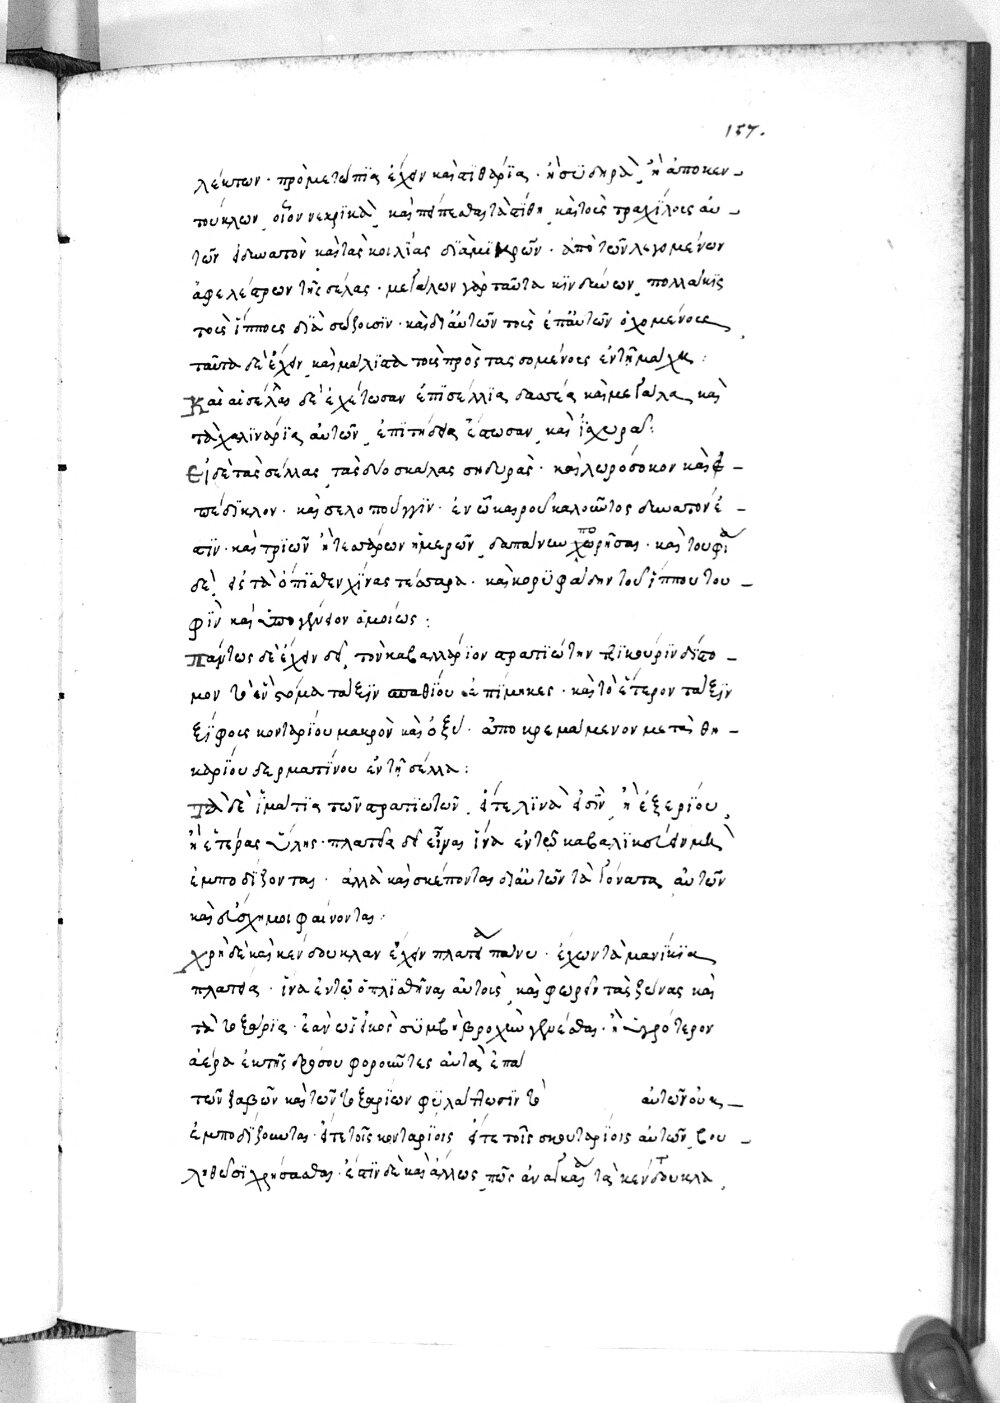 157.
λέκτων · προμετωπίδια ἔχειν καὶ στηθάρϊα · ἢ σϊδηρᾶ, ἢ ἀπὸ κεν-
τούκλων, οἷον νευρϊκὰ, καὶ σκέπεσθαι τὰ στήθη, καὶ τοὺς τραχήλους αὐ-
τῶν ἔμπροσθεν καὶ τὰς κοιλίας διὰ μϊκρῶν · ἀπὸ τῶν λεγομένων
ἀφελέτρων τῆς σέλας · μεγάλων γὰρ ταῦτα κϊνδύνων, πολλάκϊς
τοὺς ἵππους διὰσώζουσϊν · καὶ δι αὐτῶν τοὺς ἐπ αὐτῶν ὀχουμένους,
ταῦτα δὲ ἔχειν, καὶ μάλϊστα τοὺς πρὸς τασσομένους ἐν τῇ μάχῃ :
Καὶ αἱ σέλλαι δὲ ἐχέτωσαν ἐπϊσέλλϊα δασέα καὶ μεγάλα, καὶ
τὰ χαλϊνάρϊα αὐτῶν, ἐπϊτήδεια ἔστωσαν, καὶ ἰσχυρά :
Εἰς δὲ τὰς σέλλας, τὰς δύο σκάλας σηδυρὰς · καὶ λωρόσοκον καὶ
πέδϊκλον · καὶ σελοπούγγϊν · ἐν ᾧ καιροῦ καλοῦντος δυνατόν ἐ-
στϊν · καὶ τρϊῶν ἢ τεσσάρων ἡμερῶν, δαπάνην χωρῆσαι · καὶ τουφία
δὲ, εἰς τὰ ὀπϊσθενχίνας τέσσαρα · καὶ κορϋφάδην τοῦ ἵππου του-
φϊν καὶ ὑπογένειον ὁμοίως :
Πάντως δὲ ἔχειν δεῖ, τὸν καβαλλάρϊον στρατϊώτην τζϊκούρϊν δϊστο-
μον τὸ ἓν στόμα τάξϊν σπαθίου ἐπϊμηκες · καὶ τὸ ἕτερον τάξϊν
ξϊφους κονταρίου μακρὸν καὶ ὀξύ · ἀποκρεμάμενον μετὰ θη-
καρίου δερματίνου ἐν τῇ σέλλα :
Τὰ δὲ ἱμάτϊα τῶν στρατϊωτῶν, εἴτε λϊνᾶ εἰσὶν, ἢ ἐξ ἐρίου,
ἢ ἑτέρας ὕλης · πλατέα δεῖ εἶναι ἵνα ἐν τῷ καβαλϊκεύειν μὴ
ἐμποδίζονται · ἀλλὰ καὶ σκέπονται δι αὐτῶν τὰ γόνατα, αὐτῶν
καὶ εὐσχημοι φαίνονται :
χρὴ δὲ καὶ κενδουκλαν ἔχειν πλατέα πάνυ · ἔχοντα μανϊκϊα
πλατέα · ἵνα ἐν τῷ ὁπλϊσθῆναι αὐτοὺς, καὶ φωρεῖν τὰς ζάβας καὶ
τὰ τοξάρϊα · ἐὰν ὡς εἰκὸς συμβῇ βροχὴν γενέσθαι · ἢ ὑγρότερον
ἀέρα ἐκ τῆς δρόσου φοροῦντες αὐτὰ ἐπά
τῶν ζαβῶν καὶ τῶν τοξαρίων φϋλάττωσϊν τὸ αὐτῶν οὐκ-
ἐμποδίζονται · εἴτε τοῖς κονταρίοις εἴτε τοῖς σκουταρίοις αὐτῶν, βου-
ληθῶσϊ χρήσασθαι · ἔστϊν δὲ καὶ ἄλλως, πῶς ἀναγκαῖα τὰ κένδουκλα,